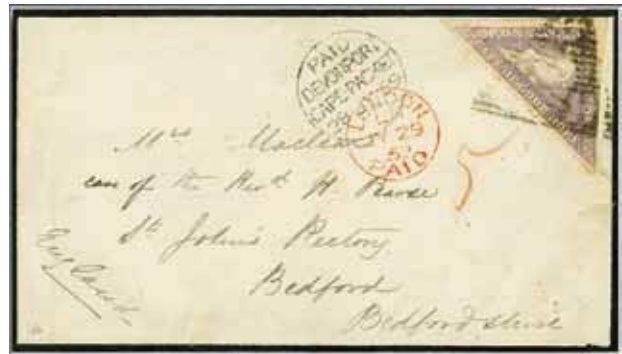 PAID
DEVONPORT
CAPE-PACKET
LONDON
29
PAID
5
Mrs
care of the Revd H.
St John's Rectory
Bedford
Bedfordshire
England